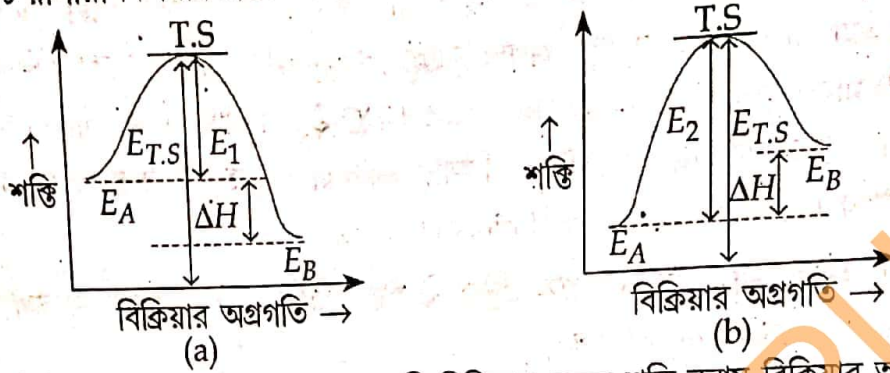 T.S
E_{T.S}
E_1
শক্তি →
E_A
ΔH
E_B
বিক্রিয়ার অগ্রগতি →
(a)
T.S
E_2
E_{T.S}
শক্তি →
E_B
ΔH
E_A
বিক্রিয়ার অগ্রগতি →
(b)